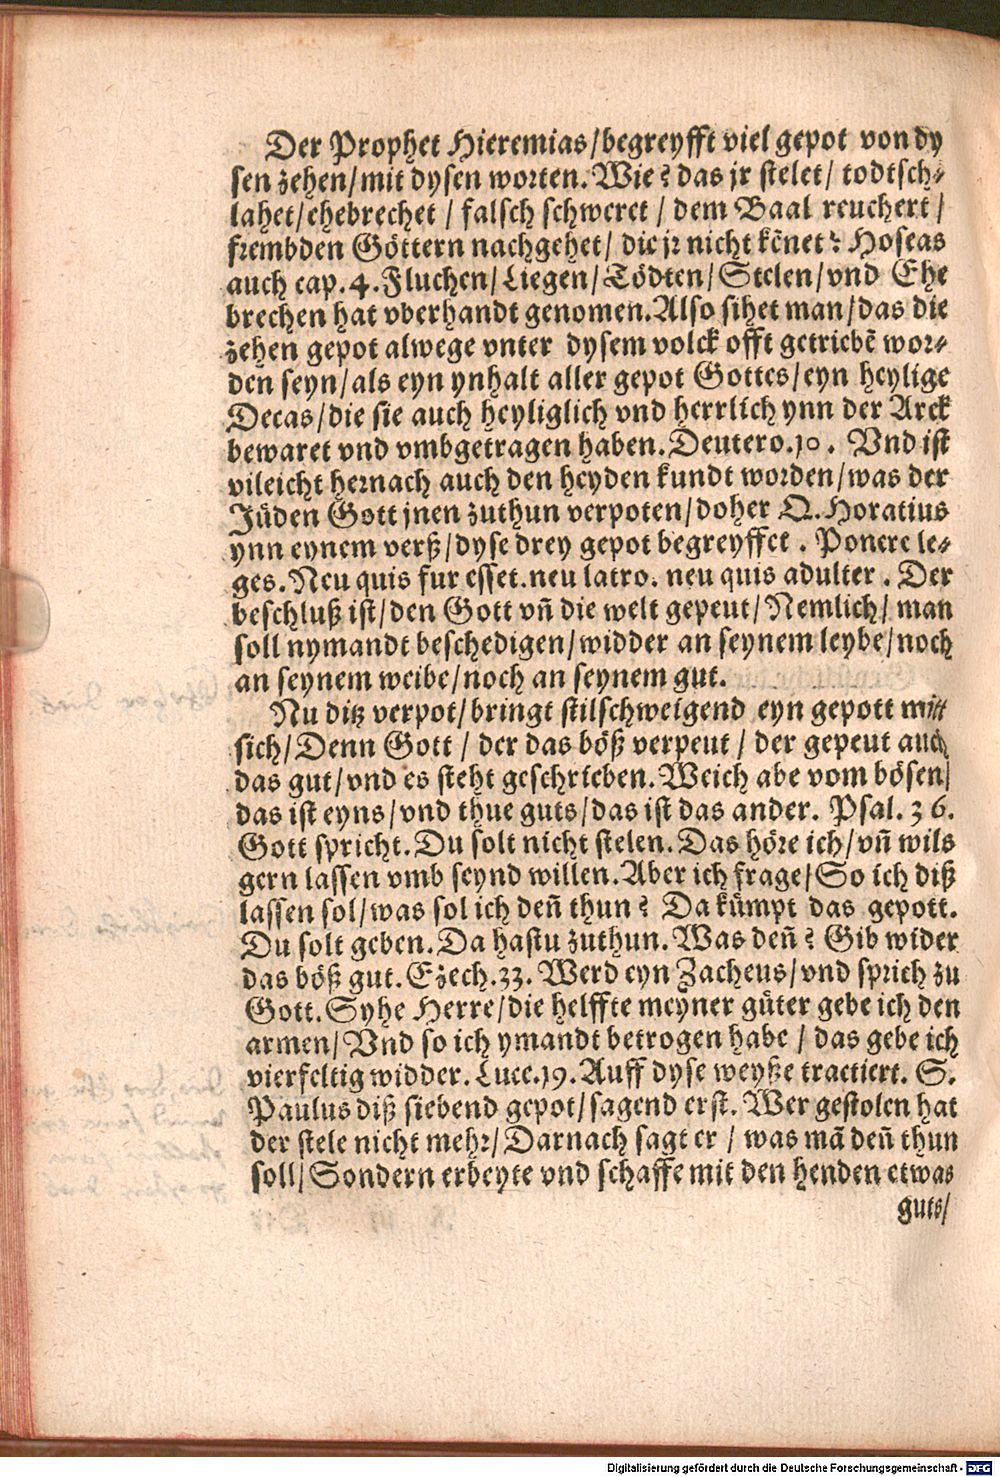 Der Prophet Hieremias/begreyfft viel gepot von dy
sen zehen/mit dysen worten. Wie? das jr stelet/ todtsch⸗
lahet/ehebrechet / falsch schweret / dem Baal reuchert /
frembden Göttern nachgehet/ die jr nicht kẽnet? Hoseas
auch cap. 4. Fluchen/ Liegen/ Tödten/ Stelen/ vnd Ehe
brechen hat vberhandt genomen. Also sihet man/das die
zehen gepot alwege vnter dysem volck offt getriebẽ wor⸗
den seyn/als eyn ynhalt aller gepot Gottes/eyn heylige
Decas/die sie auch heyliglich vnd herrlich ynn der Arck
bewaret vnd vmbgetragen haben. Deutero. 10. Vnd ist
vileicht hernach auch den heyden kundt worden/was der
Jüden Gott jnen zuthun verpoten/doher Q. Horatius
ynn eynem verß/dyse drey gepot begreyffet. Ponere le⸗
ges. Neu quis fur esset. neu latro. neu quis adulter. Der
beschluß ist/den Gott vñ die welt gepeut/Nemlich/ man
soll nymandt beschedigen/widder an seynem leybe/noch
an seynem weibe/noch an seynem gut.
Nu ditz verpot/bringt stilschweigend eyn gepott mitt
sich/Denn Gott / der das böß verpeut / der gepeut auch
das gut/vnd es steht geschrieben. Weich abe vom bösen/
das ist eyns/vnd thue guts/das ist das ander. Psal. 36.
Gott spricht. Du solt nicht stelen. Das höre ich/vñ wils
gern lassen vmb seynd willen. Aber ich frage/So ich diß
lassen sol/was sol ich deñ thun? Da kümpt das gepott.
Du solt geben. Da hastu zuthun. Was deñ? Gib wider
das böß gut. Ezech. 33. Werd eyn Zacheus/vnd sprich zu
Gott. Syhe Herre/die helffte meyner güter gebe ich den
armen/ Vnd so ich ymandt betrogen habe / das gebe ich
vierfeltig widder. Luce. 19. Auff dyse weyße tractiert. S.
Paulus diß siebend gepot/sagend erst. Wer gestolen hat
der stele nicht mehr/Darnach sagt er / was mã deñ thun
soll/Sondern erbeyte vnd schaffe mit den henden etwas
guts/
Digitalisierung gefördert durch die Deutsche Forschungsgemeinschaft - DFG